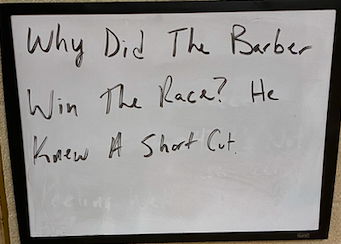 Why Did The Barber
Win The Race? He
Knew A Short Cut.